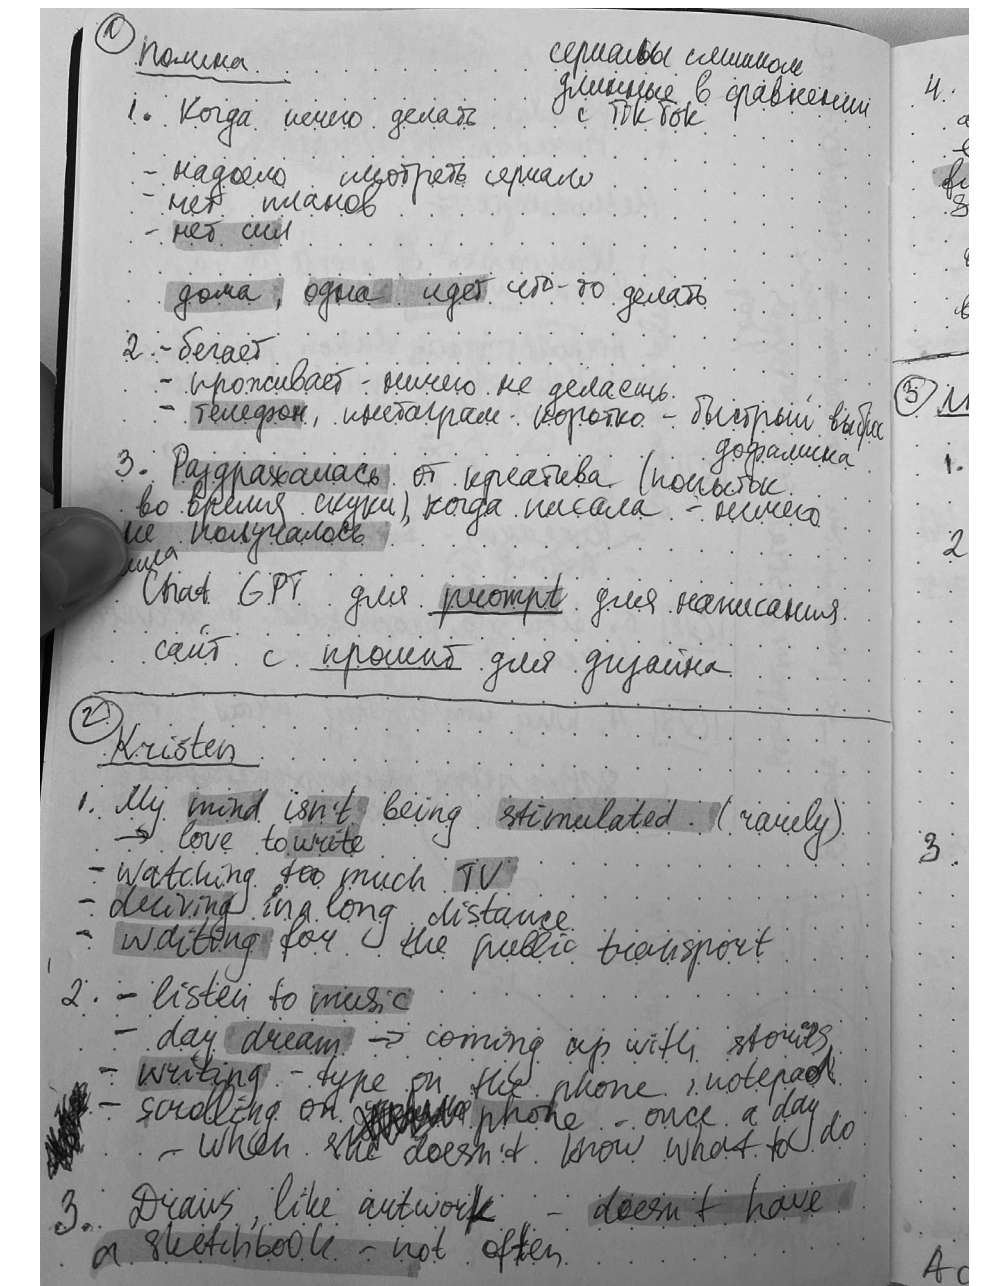 1
Полина
сериалы слишком
длинные в сравнении
с ТікТок
1. Когда нечего делать
- надоело смотреть сериало
- нет планов
- нет сил
дома, одна идет что-то делать
2. - бегает
- проживает - ничего не делаешь
- телефон, инстаграм - коротко - быстрый выброс
дофамина
3. Раздражалась от креатива (попыток
во время скуки), когда писала - ничего
не получалось
Chat GPT для prompt для написания
сайт с промпт для дизайна
2
Kristen
1. My mind isn't being stimulated. (rarely)
→ love to write
- watching too much TV
- deriving in a long distance
- waiting for the public transport
2. - listen to music
- day dream → coming up with stories
- writing - type on the phone, notepad
- scrolling on phone - once a day
- when she doesn't know what to do
3. Draws, like artwork - doesn't have
a sketchbook - not often
4.
3
1.
2
3.